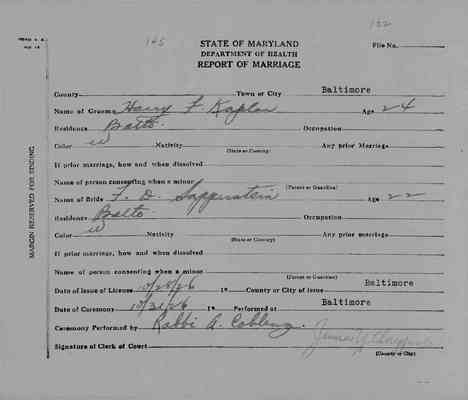 145
132
STATE OF MARYLAND
DEPARTMENT OF HEALTH
REPORT OF MARRIAGE
File No.
County Town or City Baltimore
Name of Groom Harry F. Kaplan Age 24
Residence Balto. Occupation
Color w Nativity Any prior Marriage
(State or Country)
If prior marriage, how and when dissolved
Name of person consenting when a minor
(Parent or Guardian)
Name of Bride F. D. Sapperstein Age 22
Residence Balto. Occupation
Color w Nativity Any prior marriage
(State or Country)
If prior marriage, how and when dissolved
Name of person consenting when a minor
(Parent or Guardian)
Date of Issue of License 10/28/26 19 County or City of issue Baltimore
Date of Ceremony 10/31/26 19 Performed at Baltimore
Ceremony Performed by Rabbi A. Coblenz.
Signature of Clerk of Court
(County or City)
MARGIN RESERVED FOR BINDING